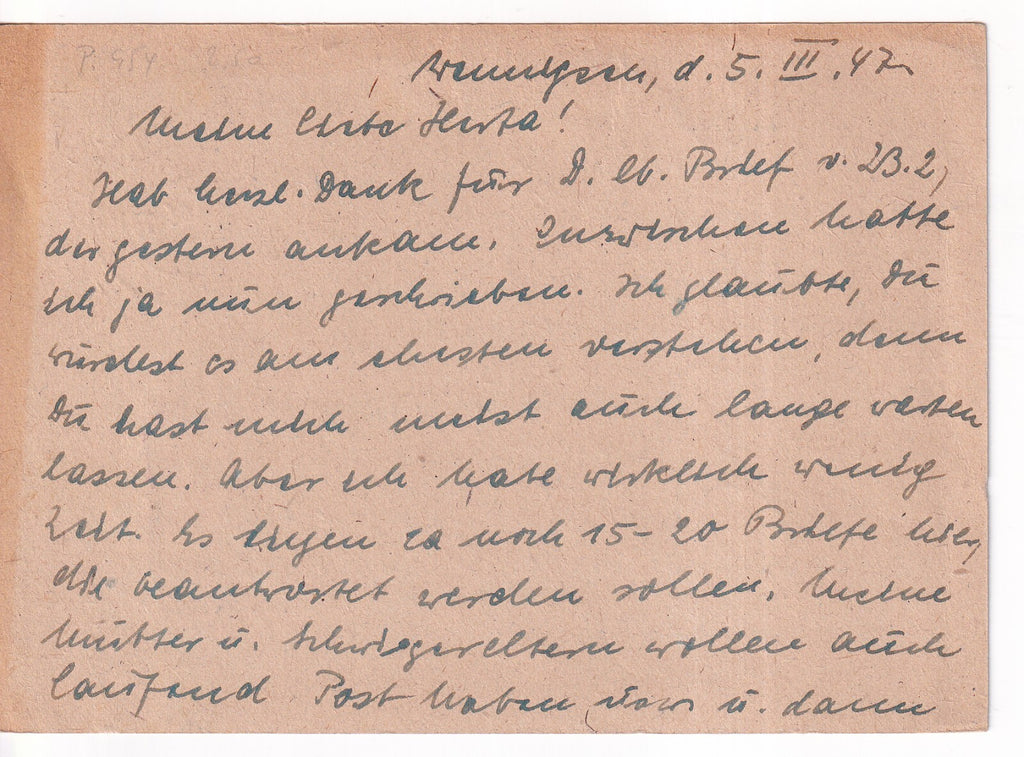 Wennigsen, d. 5. III. 47
Meine liebe Herta!
Hab herzl. Dank für D. lb. Brief v. 23.2,
der gestern ankam. Inzwischen hatte
ich ja nun geschrieben. Ich glaubte, Du
würdest es am ehesten verstehen, denn
Du hast mich meist auch lange warten
lassen. Aber ich habe wirklich wenig
Zeit. Es liegen ca noch 15-20 Briefe hier,
die beantwortet werden sollen. Meine
Mutter u. Schwiegereltern wollen auch
laufend Post haben usw u. dann